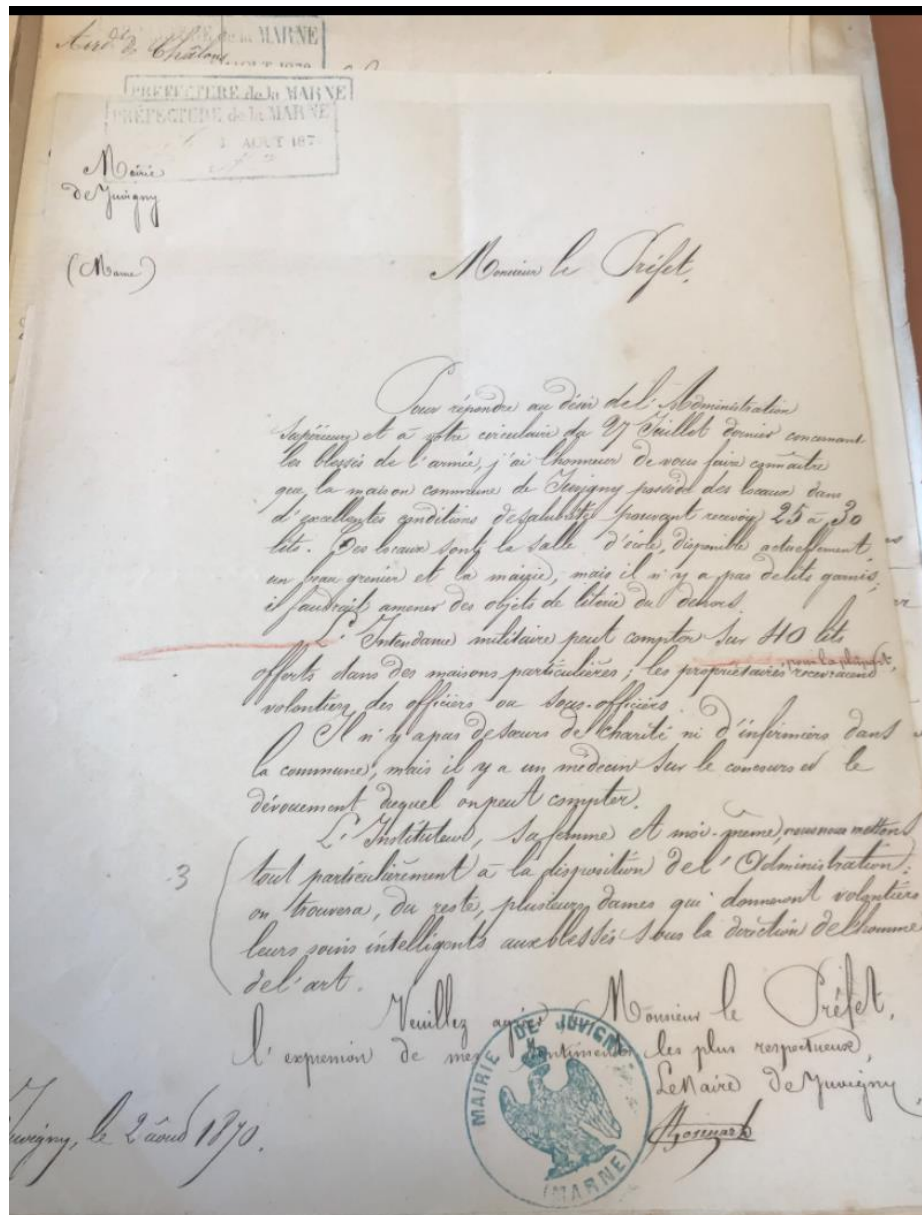 Arrdt de Châlons
PRÉFECTURE de la MARNE
PRÉFECTURE de la MARNE
AOUT 187
Mairie
de Juvigny
(Marne)
Monsieur le Préfet,
Pour répondre au désir de l'Administration
Supérieure et à votre circulaire du 27 Juillet dernier concernant
les blessés de l'armée, j'ai l'honneur de vous faire connaître
que la maison commune de Juvigny possède des locaux dans
d'excellentes conditions de salubrité pouvant recevoir 25 à 30
lits. Ces locaux sont la salle d'école, disponible actuellement,
un beau grenier et la mairie, mais il n'y a pas de lits garnis;
il faudrait amener des objets de literie du dehors.
L'Intendance militaire peut compter sur 40 lits
offerts dans des maisons particulières; les propriétaires recevraient, pour la plupart,
volontiers des officiers ou sous-officiers.
Il n'y a pas de sœurs de charité ni d'infirmiers dans
la commune; mais il y a un médecin sur le concours et le
dévouement duquel on peut compter.
L'Instituteur, sa femme et moi-même, nous nous mettons
3
tout particulièrement à la disposition de l'Administration:
on trouvera, du reste, plusieurs dames qui donneront volontiers
leurs soins intelligents aux blessés sous la direction de l'homme
de l'art.
Veuillez agréer, Monsieur le Préfet,
l'expression de mes sentiments les plus respectueux,
Le Maire de Juvigny,
Juvigny, le 2 août 1870.
MAIRIE DE JUVIGNY
(MARNE)